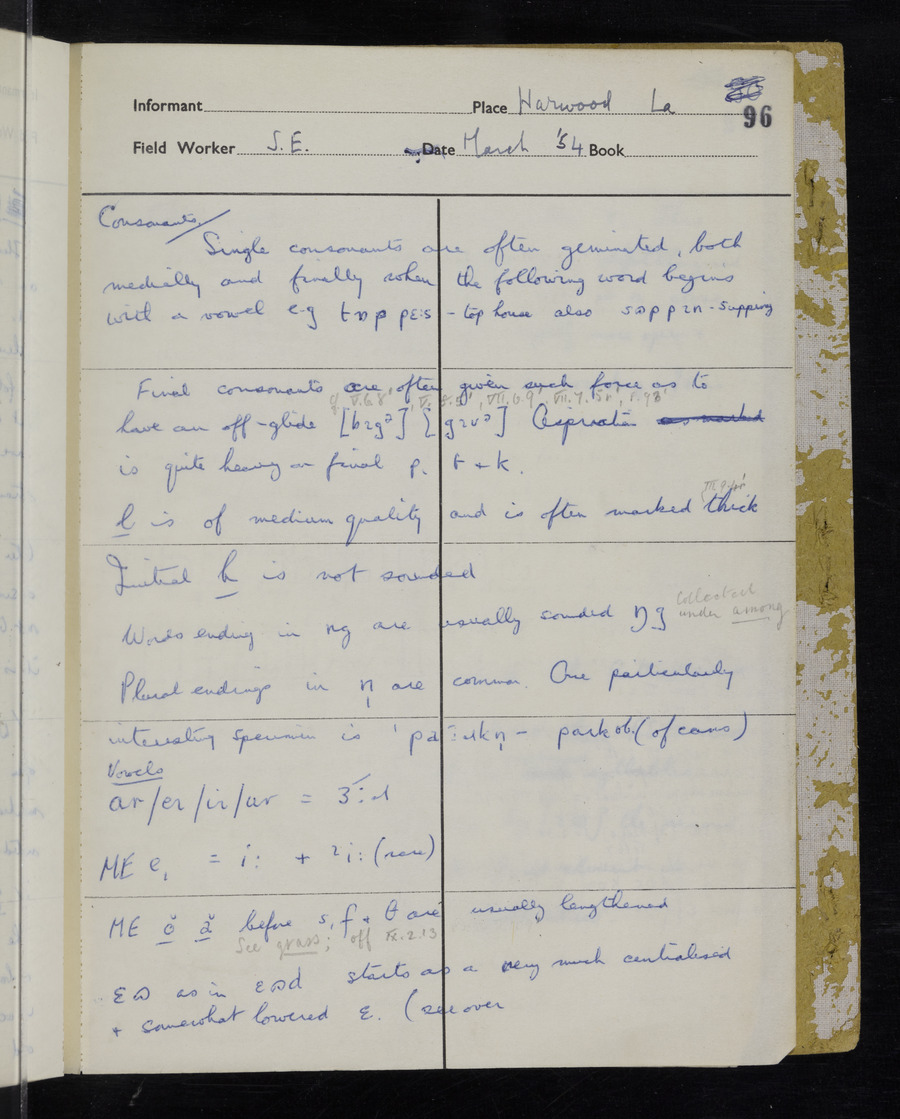 Informant Place Harwood La
96
Field Worker S.E. Date March '54 Book
Consonants
Single consonants are often geminated, both
medially and finally when the following word begins
with a vowel e.g tɒp pɛ:s - top house also sɒppɪn - supping
Final consonants are often given such force as to
have an off-glide [bɪgᵊ] [gɪvᵊ] Aspiration as marked
is quite heavy on final p, t + k.
l is of medium quality and is often marked thick
Initial h is not sounded
Words ending in ng are usually sounded ŋg collected
under among
Plural endings in n̩ are common. One particularly
interesting specimen is 'pa:ɹkn̩ - park ob. (of cans)
Vowels
ar/er/ir/ur = ɜ:ɹ
ME ē̩ = i: + ɪi: (rare)
ME ŏ ă before s, f + θ are usually lengthened
See grass; off IX.2.13
ɛɒ as in ɛɒd starts as a very much centralised
+ somewhat lowered ɛ. (see over